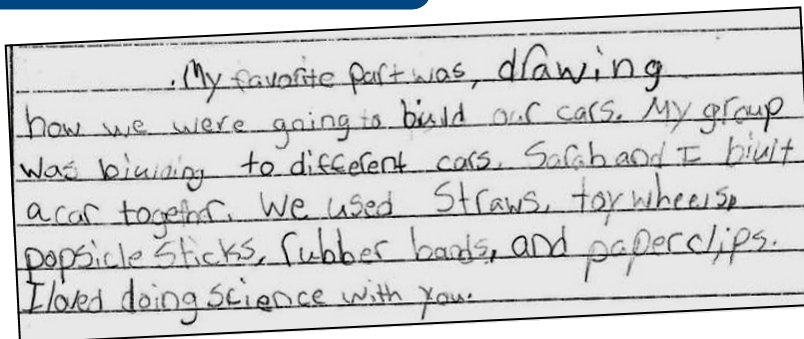 . My favorite part was, drawing
how we were going to biuld our cars. My group
was biuiding to different cars. Sarah and I biult
a car together. We used Straws, toy wheels,
popsicle sticks, rubber bands, and paperclips.
I loved doing science with you.